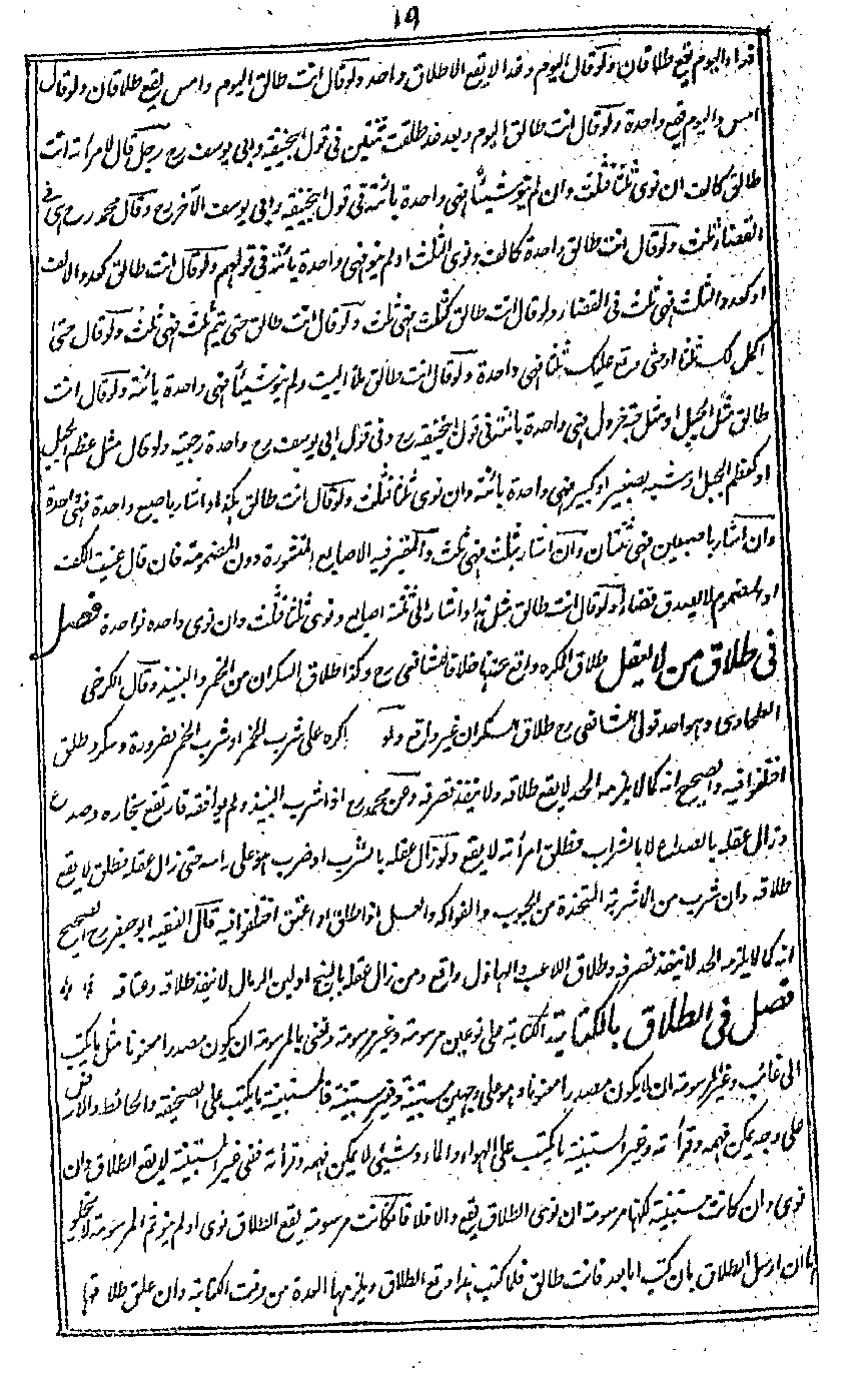 ١٩
غدا واليوم يقع طلاقان ولو قال اليوم وغدا لا يقع الا طلاق واحد ولو قال انت طالق اليوم وامس يقع طلاقان ولو قال
امس واليوم يقع واحدة ولو قال انت طالق اليوم وبعد غد طلقت ثنتين في قول ابيحنيفة وابي يوسف رح رجل قال لامرأته انت
طالق كالف ان نوى ثلثا فثلث وان لم ينو شيئا فهي واحدة بائنة في قول ابيحنيفة وابي يوسف الآخر رح وقال محمد رح هي في
القضاء ثلث ولو قال انت طالق واحدة كالف ونوى الثلث او لم ينو فهي واحدة بائنة في قولهم ولو قال انت طالق كعدد الالف
او كعدد الثلث فهي ثلث في القضاء ولو قال انت طالق كثلث فهي ثلث ولو قال انت طالق حتى يتم ثلث فهي ثلث ولو قال حتى
اكمل لك ثلثا او حتى وقع عليك ثلثا فهي واحدة ولو قال انت طالق ملأ البيت ولم ينو شيئا فهي واحدة بائنة ولو قال انت
طالق مثل الجبل او مثل حبة خردل فهي واحدة بائنة في قول ابيحنيفة رح وفي قول ابي يوسف رح واحدة رجعية ولو قال مثل عظم الجبل
او كعظم الجبل او شبه بصغير او كبير فهي واحدة بائنة وان نوى ثلثا فثلث ولو قال انت طالق هكذا واشار باصبع واحدة فهي واحدة
وان اشار باصبعين فهي ثنتان وان اشار بثلث فهي ثلث والمعتبر فيه الاصابع المنشورة دون المضمومة فان قال عنيت الكف
او المضموم لا يصدق قضاء ولو قال انت طالق مثل هذا واشار الى ثلثة اصابع ونوى ثلثا فثلث وان نوى واحدة فواحدة فصل
في طلاق من لا يعقل طلاق المكره واقع عندنا خلافا للشافعي رح وكذا طلاق السكران من الخمر والنبيذ وقال الكرخي
الطحاوي وهو احد قولي الشافعي رح طلاق السكران غير واقع ولو اكره على شرب الخمر او شرب الخمر بضرورة وسكر وطلق
اختلفوا فيه والصحيح انه كما لا يلزمه الحد لا يقع طلاقه ولا ينفذ تصرفه وعن محمد رح اذا شرب النبيذ ولم يوافقه فارتفع بخاره وصدع
وزال عقله بالصداع لا بالشراب فطلق امرأته لا يقع ولو زال عقله بالشرب او ضرب هو على راسه حتى زال عقله فطلق لا يقع
طلاقه وان شرب من الاشربة المتخذة من الحبوب والفواكه والعسل اذا طلق او اعتق اختلفوا فيه قال الفقيه ابو جعفر رح الصحيح
انه كما لا يلزمه الحد لا ينفذ تصرفه وطلاق اللاعب والهازل واقع ومن زال عقله بالبنج او لبن الرمال لا ينفذ طلاقه وعتاقه
فصل في الطلاق بالكتابة الكتابة على نوعين مرسومة وغير مرسومة ونعني بالمرسومة ان يكون مصدرا معنونا مثل ما يكتب
الى غائب وغير المرسومة ان لا يكون مصدرا معنونا وهو على وجهين مستبينة وغير مستبينة فالمستبينة ما يكتب على الصحيفة والحائط والارض
على وجه يمكن فهمه وقرأته وغير المستبينة ما يكتب على الهواء والماء وشيئ لا يمكن فهمه وقرأته ففي غير المستبينة لا يقع الطلاق وان
نوى وان كانت مستبينة لكنها مرسومة ان نوى الطلاق يقع والا فلا فان كانت مرسومة يقع الطلاق نوى او لم ينو ثم المرسومة لا تخلو
اما ان ارسل الطلاق بان كتب اما بعد فانت طالق فلما كتب هذا وقع الطلاق ويلزمها العدة من وقت الكتابة وان علق طلاقها